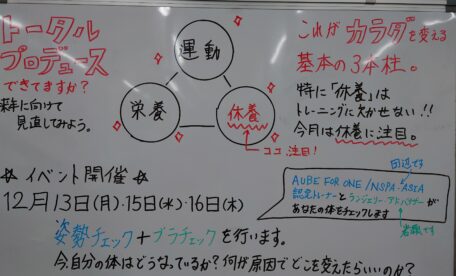 トータル
プロデュース
できてますか？
来年に向けて
見直してみよう。
運動
栄養
休養
ココ注目！
これがカラダを変える
基本の3本柱。
特に「休養」は
トレーニングに欠かせない!!
今月は休養に注目。
☆ イベント開催 ☆
12月13日(月)・15日(水)・16日(木)
AUBE FOR ONE/NSPA-ASIA
認定トレーナーとランジェリーアドバイザーが
あなたの体をチェックします
姿勢チェック+ブラチェックを行います。
今、自分の体はどうなっているか？何が原因でどこを変えたらいいのか？